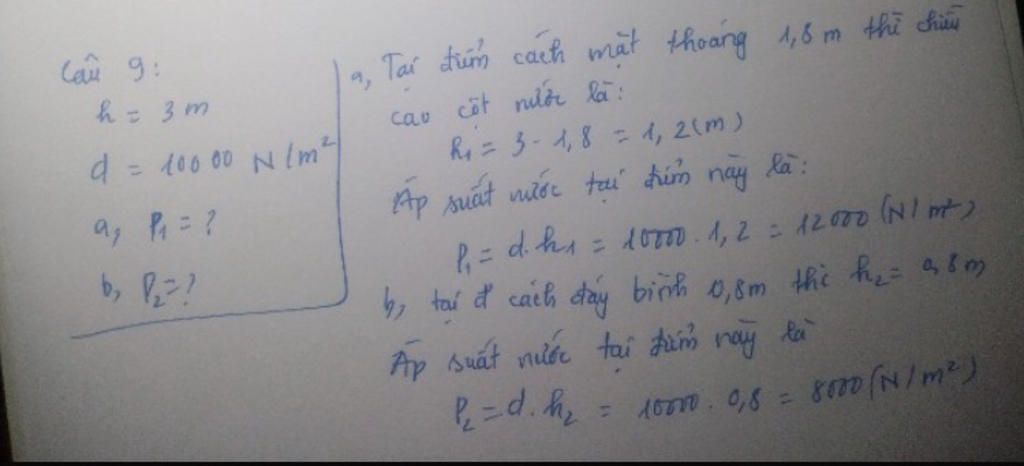 Câu 9:
h = 3 m
d = 10000 N/m²
a, P₁ = ?
b, P₂ = ?
a, Tại điểm cách mặt thoáng 1,8 m thì chiều
cao cột nước là:
h₁ = 3 - 1,8 = 1,2 (m)
Áp suất nước tại điểm này là:
P₁ = d.h₁ = 10000. 1,2 = 12000 (N/m²)
b, tại đ cách đáy bình 0,8m thì h₂ = 0,8m
Áp suất nước tại điểm này là
P₂ = d. h₂ = 10000. 0,8 = 8000 (N/m²)